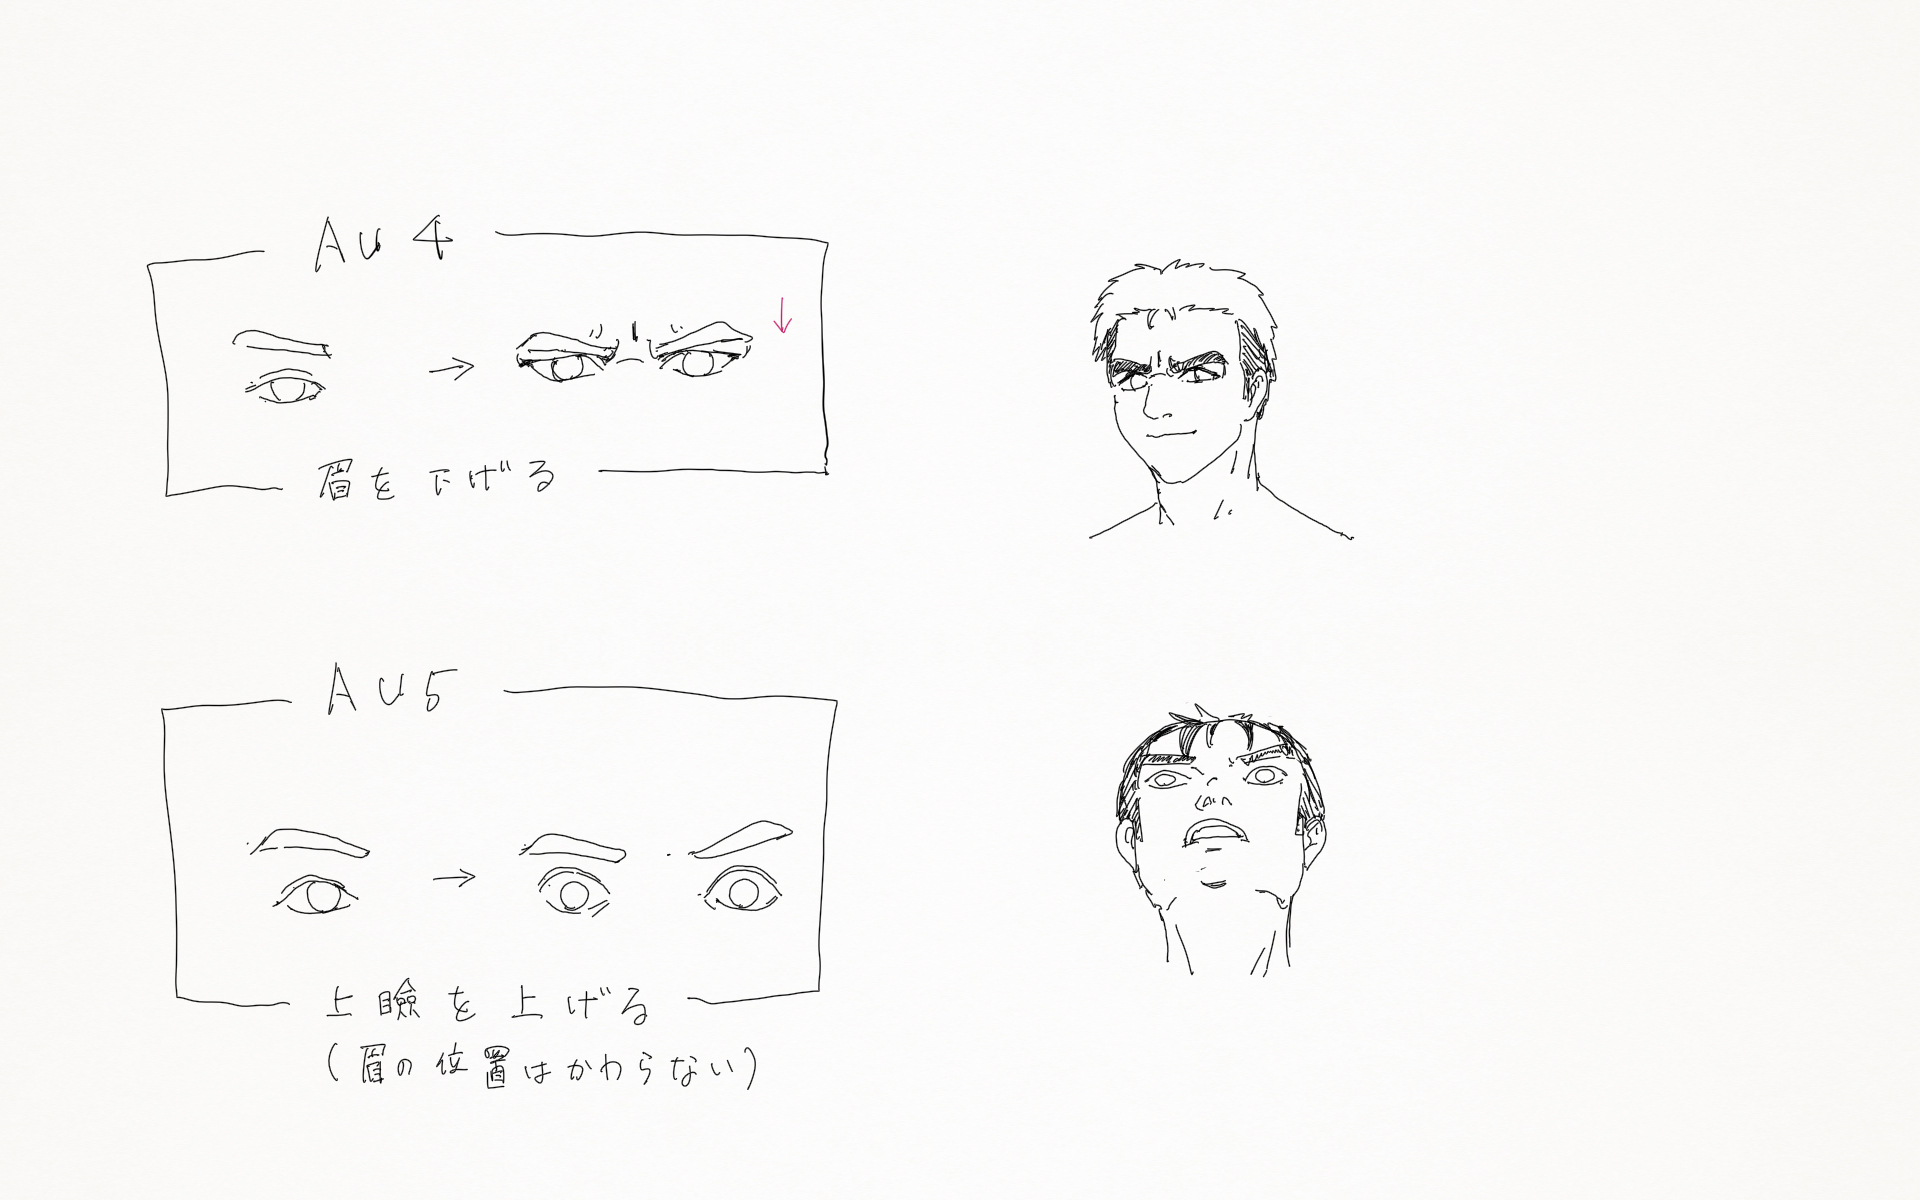 AU 4
眉を下げる
AU5
上瞼を上げる
(眉の位置はかわらない)